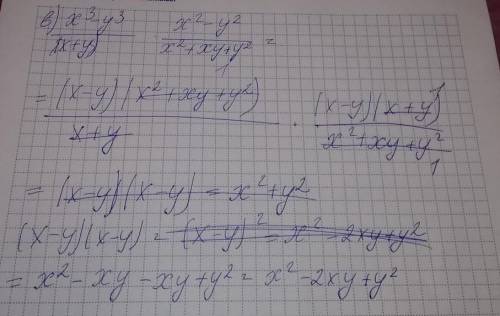 в) x³-y³/(x+y) x²-y²/x²+xy+y² =
= (x-y)(x²+xy+y²)/x+y · (x-y)(x+y)/x²+xy+y²
1 1 1
= (x-y)(x-y) = x²+y²
(x-y)(x-y) = (x-y)² = x² -2xy+y²
= x² - xy - xy + y² = x² - 2xy + y²